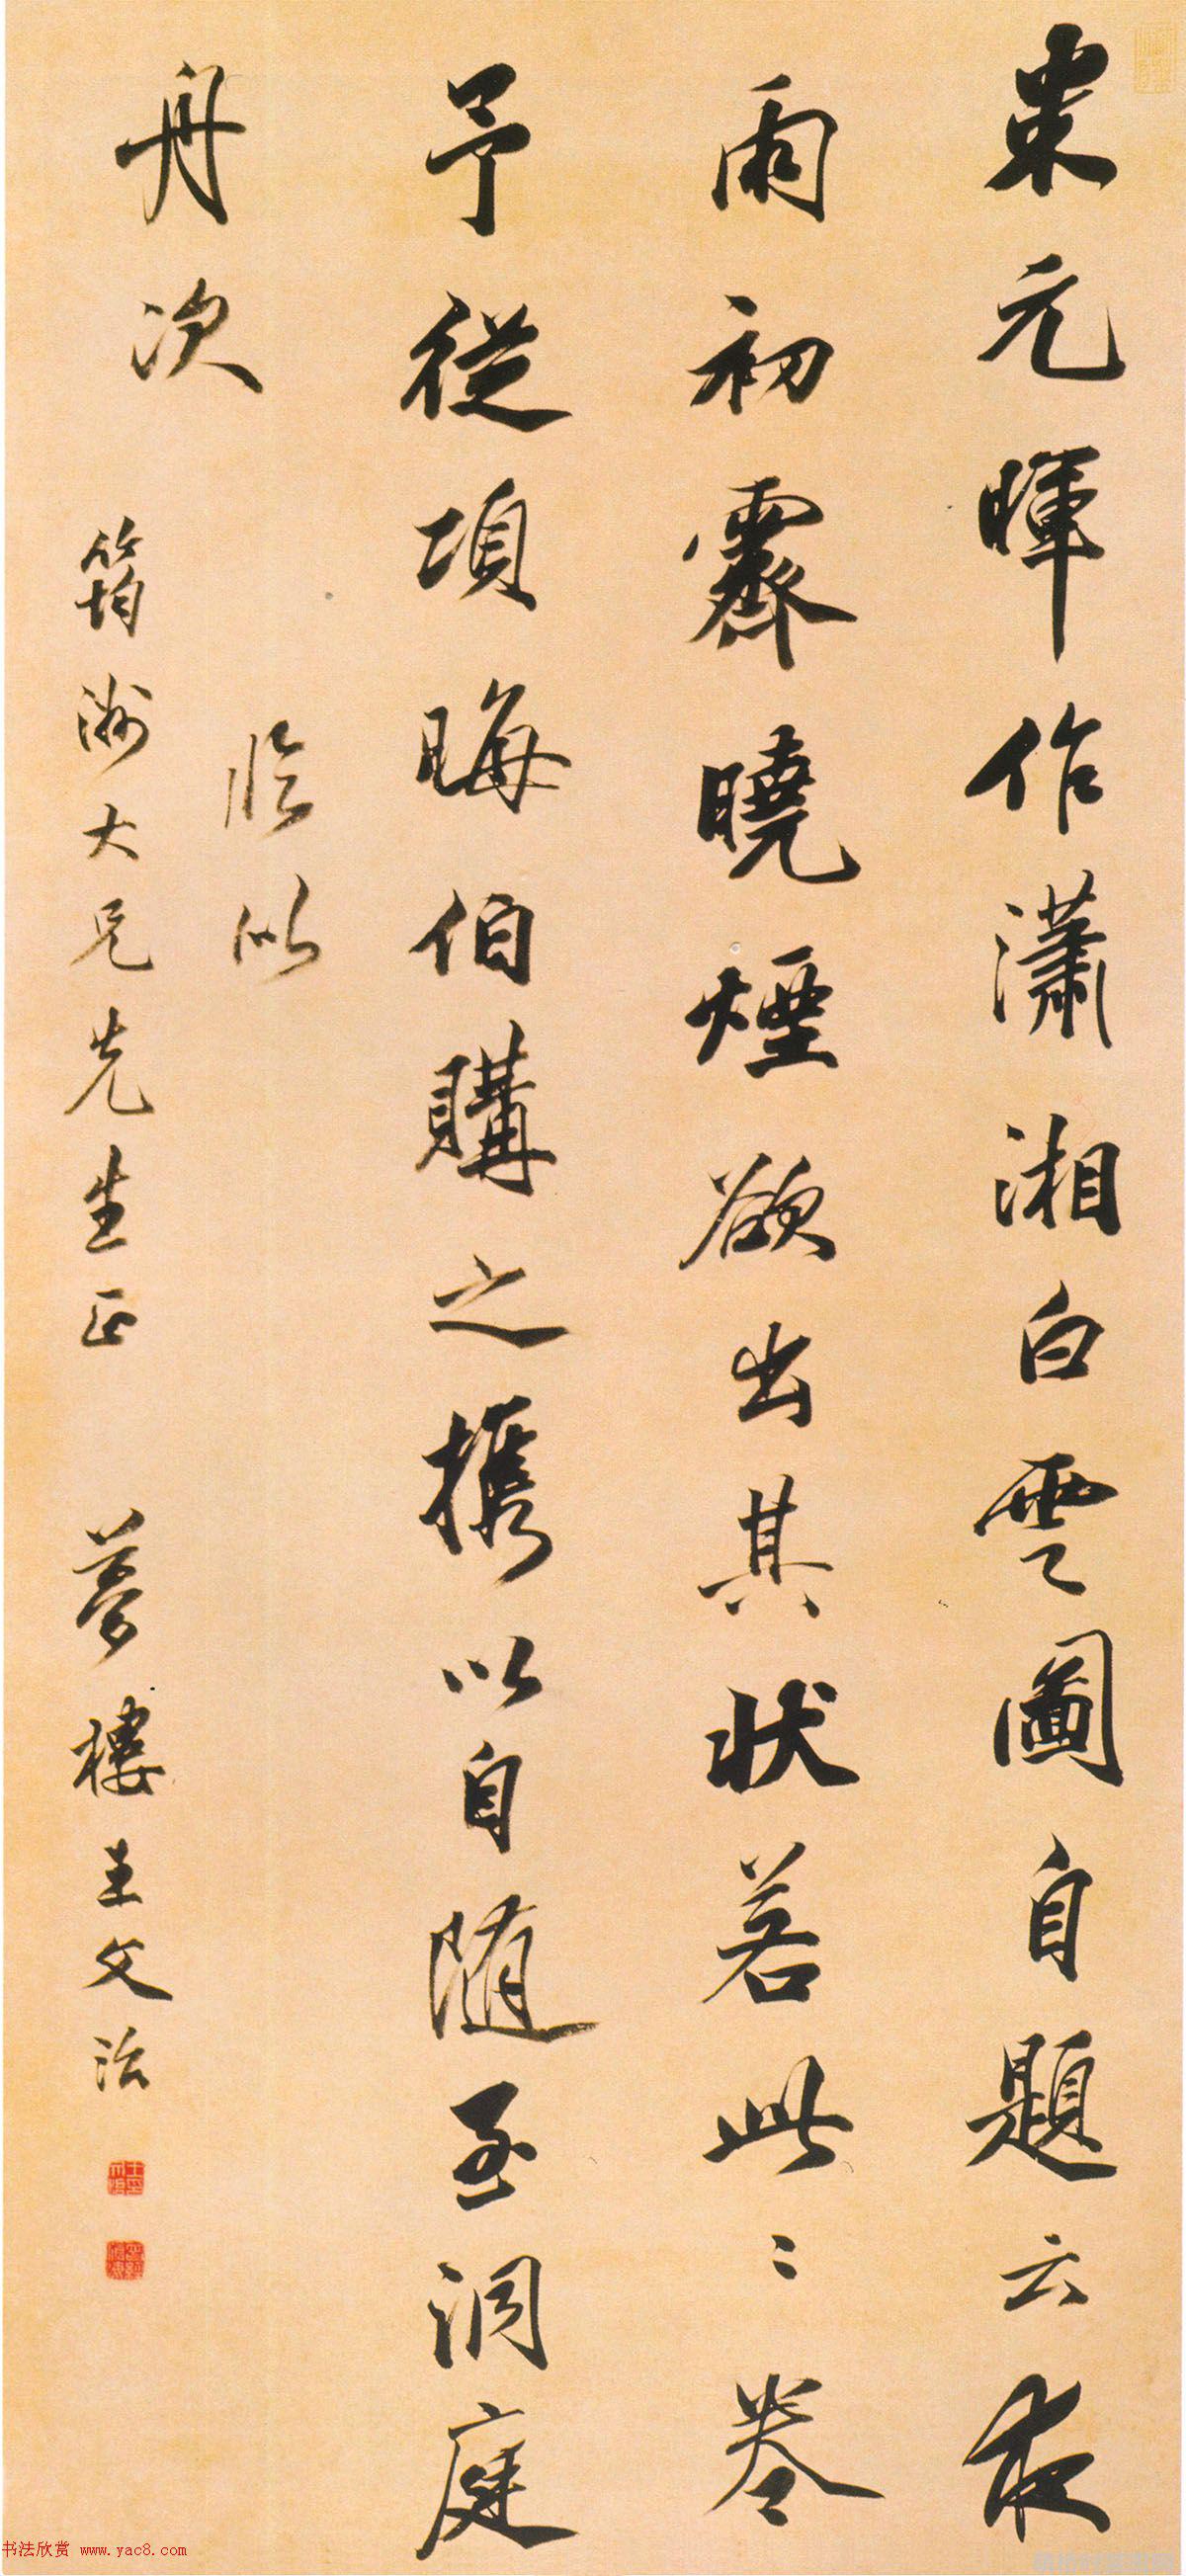 米元暉作瀟湘白雲圖自題云夜
雨初霽曉煙欲出其狀若此此卷
予從項晦伯購之攜以自隨至洞庭
舟次
臨似
筠洲大兄先生正
夢樓王文治
书法欣赏 www.yac8.com